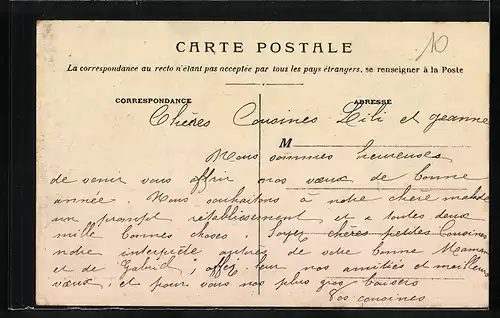 10
CARTE POSTALE
La correspondance au recto n'étant pas acceptée par tous les pays étrangers, se renseigner à la Poste
CORRESPONDANCE
ADRESSE
Chères Cousines Lili et Jeanne
M
Nous sommes heureuses
de venir vous offrir nos vœux de bonne
année. Nous souhaitons à notre chère malade
un prompt rétablissement et a toutes deux
mille bonnes choses. Soyez chères petites Cousines
notre interprète auprès de votre bonne Maman
et de Gabriel, offrez leur nos amitiés et meilleurs
vœux, et pour vous nos plus gros baisers
Vos cousines